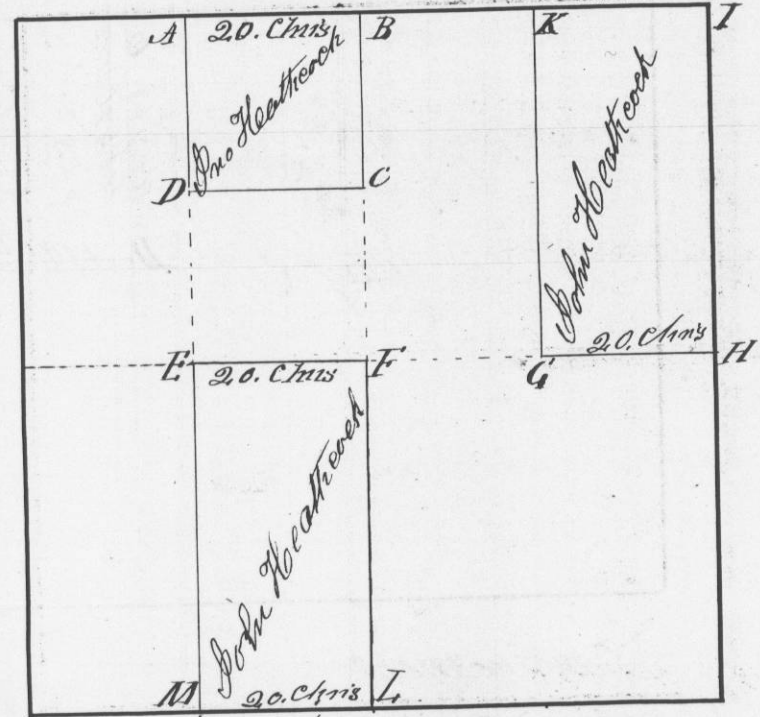 A 20. Chns B K I
Jno Heathcock
John Heathcock
D C
20. Chns
E F G H
20. Chns
John Heathcock
M 20. Chns L